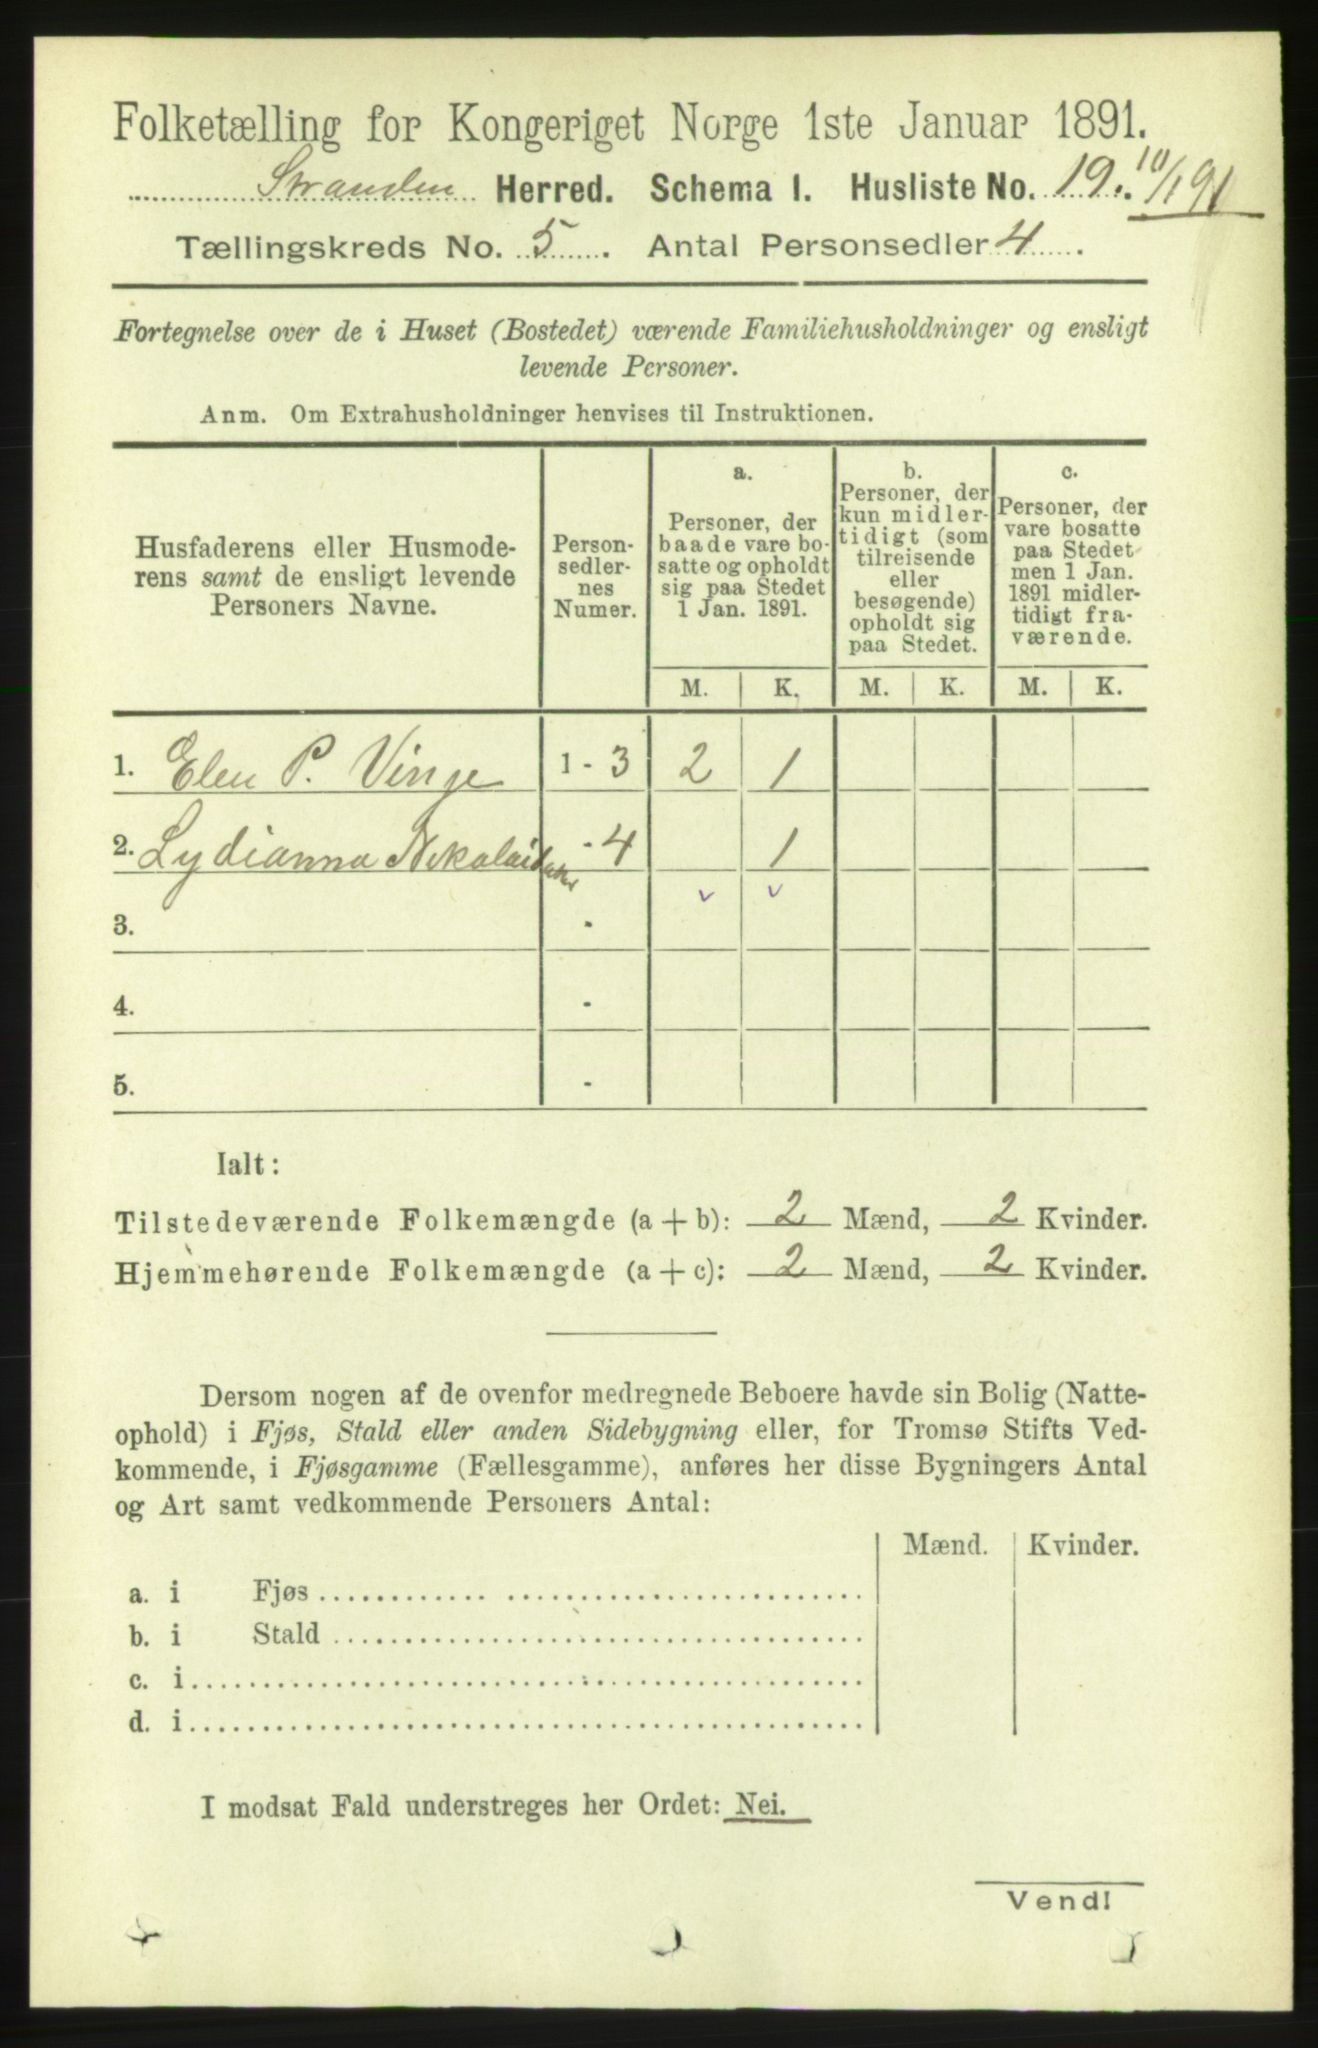 Folketælling for Kongeriget Norge 1ste Januar 1891.
Stranden Herred. Schema I. Husliste No. 19. 10/1 91
Tællingskreds No. 5. Antal Personsedler 4.
Fortegnelse over de i Huset (Bostedet) værende Familiehusholdninger og ensligt
levende Personer.
Anm. Om Extrahusholdninger henvises til Instruktionen.
Husfaderens eller Husmode-
rens samt de ensligt levende
Personers Navne.
Person-
sedler-
nes
Numer.
a.
Personer, der
baade vare bo-
satte og opholdt
sig paa Stedet
1 Jan. 1891.
b.
Personer, der
kun midler-
tidigt (som
tilreisende
eller
besøgende)
opholdt sig
paa Stedet.
c.
Personer, der
vare bosatte
paa Stedet
men 1 Jan.
1891 midler-
tidigt fra-
værende.
M. K. M. K. M. K.
1. Elen P. Vinje 1 - 3 2 1
2. Lydianna Nikolaidatter - 4 1
v v
3. -
4. -
5. -
Ialt:
Tilstedeværende Folkemængde (a + b): 2 Mænd, 2 Kvinder.
Hjemmehørende Folkemængde (a + c): 2 Mænd, 2 Kvinder.
Dersom nogen af de ovenfor medregnede Beboere havde sin Bolig (Natte-
ophold) i Fjøs, Stald eller anden Sidebygning eller, for Tromsø Stifts Ved-
kommende, i Fjøsgamme (Fællesgamme), anføres her disse Bygningers Antal
og Art samt vedkommende Personers Antal:
Mænd. Kvinder.
a. i Fjøs
b. i Stald
c. i
d. i
I modsat Fald understreges her Ordet: Nei.
Vend!